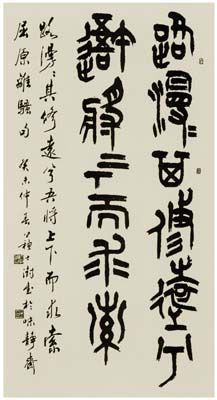 路漫〻其修遠兮
吾將上下而求索
路漫〻其修遠兮吾將上下而求索
屈原離騷句 癸未仲春 士澍書於味靜齋